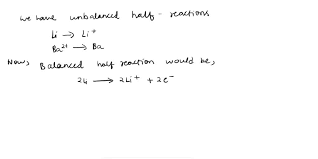 we have unbalanced half-reactions
Li → Li⁺
Ba²⁺ → Ba
Now, Balanced half reaction would be,
2Li → 2Li⁺ + 2e⁻